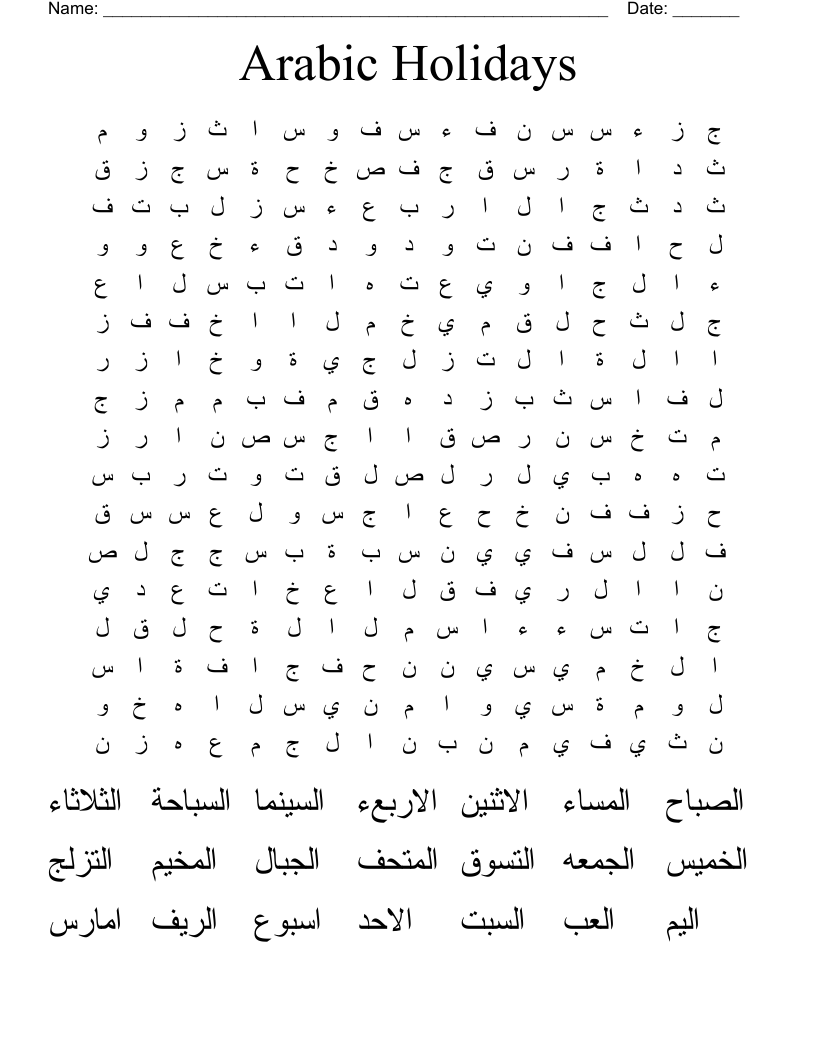 Name: ______________________________________________________ Date: _______
Arabic Holidays
ج ز ء س س ن ف ء س ف و س ا ث ز و م
ث د ا ة ر س ق ج ف ص خ ح ة س ج ز ق
ث د ث ج ا ل ا ر ب ع ء س ز ل ب ت ف
ل ح ا ف ف ن ت و د و د ق ء خ ع و و
ء ا ل ج ا و ي ع ت ه ا ت ب س ل ا ع
ج ل ث ح ل ق م ي خ م ل ا ا خ ف ف ز
ا ا ل ة ا ل ت ز ل ج ي ة و خ ا ز ر
ل ف ا س ث ب ز د ه ق م ف ب م م ز ج
م ت خ س ن ر ص ق ا ا ج س ص ن ا ر ز
ت ه ه ب ي ل ر ل ص ل ق ت و ت ر ب س
ح ز ف ف ن خ ح ع ا ج س و ل ع س س ق
ف ل ل س ف ي ي ن س ب ة ب س ج ج ل ص
ن ا ا ل ر ي ف ق ل ا ع خ ا ت ع د ي
ج ا ت س ء ء ا س م ل ا ل ة ح ل ق ل
ا ل خ م ي س ي ن ن ح ف ج ا ف ة ا س
ل و م ة س ي و ا م ن ي س ل ا ه خ و
ن ث ي ف ي م ن ب ن ا ل ج م ع ه ز ن
الصباح المساء الاثنين الاربعء السينما السباحة الثلاثاء
الخميس الجمعه التسوق المتحف الجبال المخيم التزلج
اليم العب السبت الاحد اسبوع الريف امارس